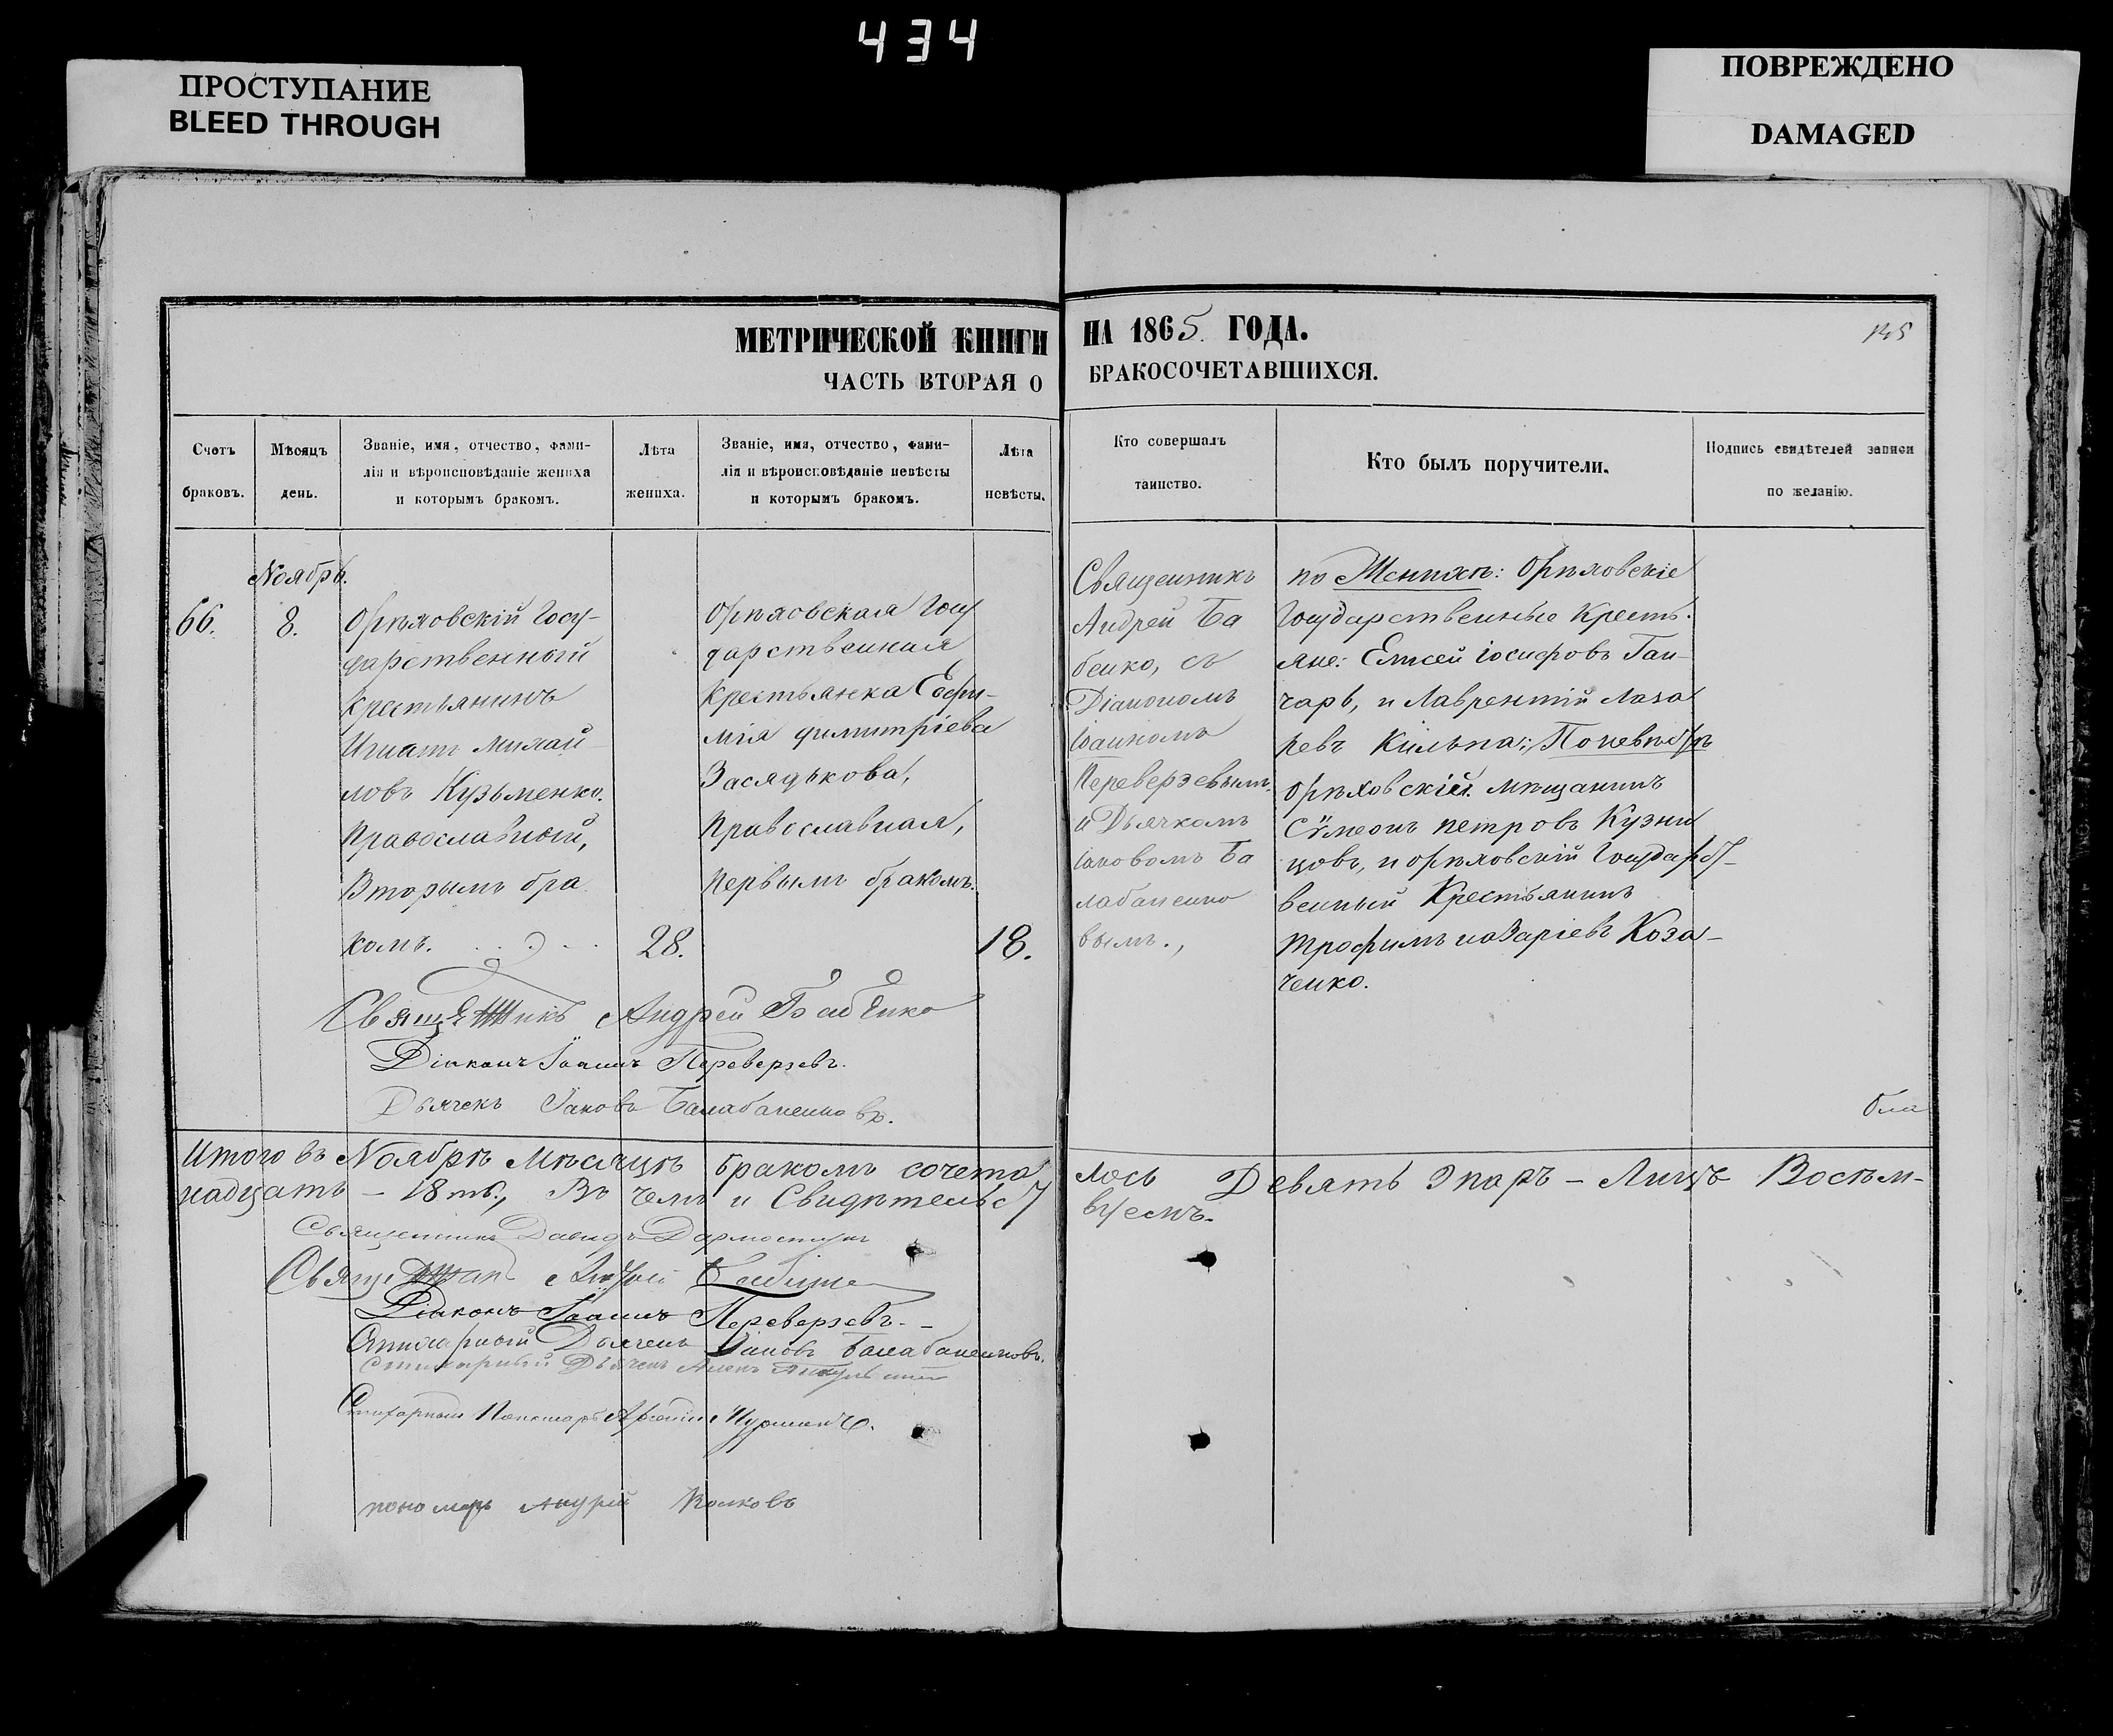 434
ПРОСТУПАНИЕ
BLEED THROUGH
ПОВРЕЖДЕНО
DAMAGED
МЕТРИЧЕСКОЙ КНИГИ НА 1865. ГОДА.
145
ЧАСТЬ ВТОРАЯ О БРАКОСОЧЕТАВШИХСЯ.
Счетъ
браковъ.
Мѣсяцъ
день.
Званіе, имя, отчество, фами-
лія и вѣроисповѣданіе жениха
и которымъ бракомъ.
Лѣта
жениха.
Званіе, имя, отчество, фами-
лія и вѣроисповѣданіе невѣсты
и которымъ бракомъ.
Лѣта
невѣсты.
Кто совершалъ
таинство.
Кто былъ поручители.
Подпись свидѣтелей записи
по желанію.
66.
Ноябрь.
8.
Орѣховскій Госу-
дарственный
крестьянинъ
Игнатъ Михай-
ловъ Кузьменко.
Православный,
Вторымъ бра
комъ.
28.
Орѣховская Госу
дарственная
крестьянка Евфи-
мія димитріева
Засядькова,
Православная,
первымъ бракомъ.
18.
Священникъ
Андрей Ба
бенко, съ
Діакономъ
Іоанномъ
Переверзевымъ
и Дьячкомъ
Іаковомъ Ба
лабаненко
вымъ.,
по Женихѣ: Орѣховскіе
Государственные Кресть.
яне: Елисей Іосифовъ Ган-
чарь, и Лаврентій Лаза
ревъ По невѣстѣ
орѣховскій мѣщанинъ
Сѵмеонъ петровъ Кузни
цовъ, и орѣховскій Государст-
венный Крестьянинъ
трофимъ назаріевъ Коза-
ченко.
Священникъ Андрей Бабенко
Діаконъ Іоаннъ Переверзевъ.
Дьячекъ Іаковъ Балабаненковъ.
бла
Итого въ Ноябрѣ мѣсяцѣ бракомъ сочета
лось Девять паръ – Лицъ Восѣм-
надцать – 18ть., Въ чемъ и Свидѣтельст
вуемъ.
Священникъ Давидъ
Священникъ Андрей Бабенко
Діаконъ Іоаннъ Переверзевъ. –
Стихарный Дьячекъ Іаковъ Балабаненковъ.
Стихарный Дьячекъ
Стихарный Пономарь
пономарь Андрей Волковъ